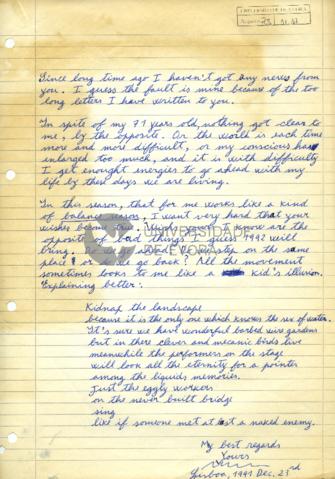 UNIVERSIDADE DE ÉVORA
Since long time ago I haven't got any news from
you. I guess the fault is mine because of the too
long letters I have written to you.
In spite of my 71 years old, nothing got clear to
me, by the opposite. Or the world is each time
more and more difficult, or my conscious has
enlarged too much, and it is with difficulty
I get enought energies to go ahead with my
life by these days we are living.
In this season, that for me works like a kind
of balance season, I want very hard that your
wishes become true. Which I know are the
opposite of bad things I guess 1992 will
bring. Do we go ahead, do we stop on the same
place? or do we go back? All the movement
sometimes looks to me like a kid's illusion.
Explaining better:
Kidnap the landscape
because it is the only one which knows the sex of water.
It's sure we have wonderful barbed wire gardens
but in there clever and mecanic birds live
meanwhile the performers on the stage
will look all the eternity for a pointer
among the liquids memories.
Just the eggly workers
on the never built bridge
sing
like if someone met at last a naked enemy.
My best regards
Yours
Lisboa, 1991 Dec. 23rd
UNIVERSIDADE
DE ÉVORA